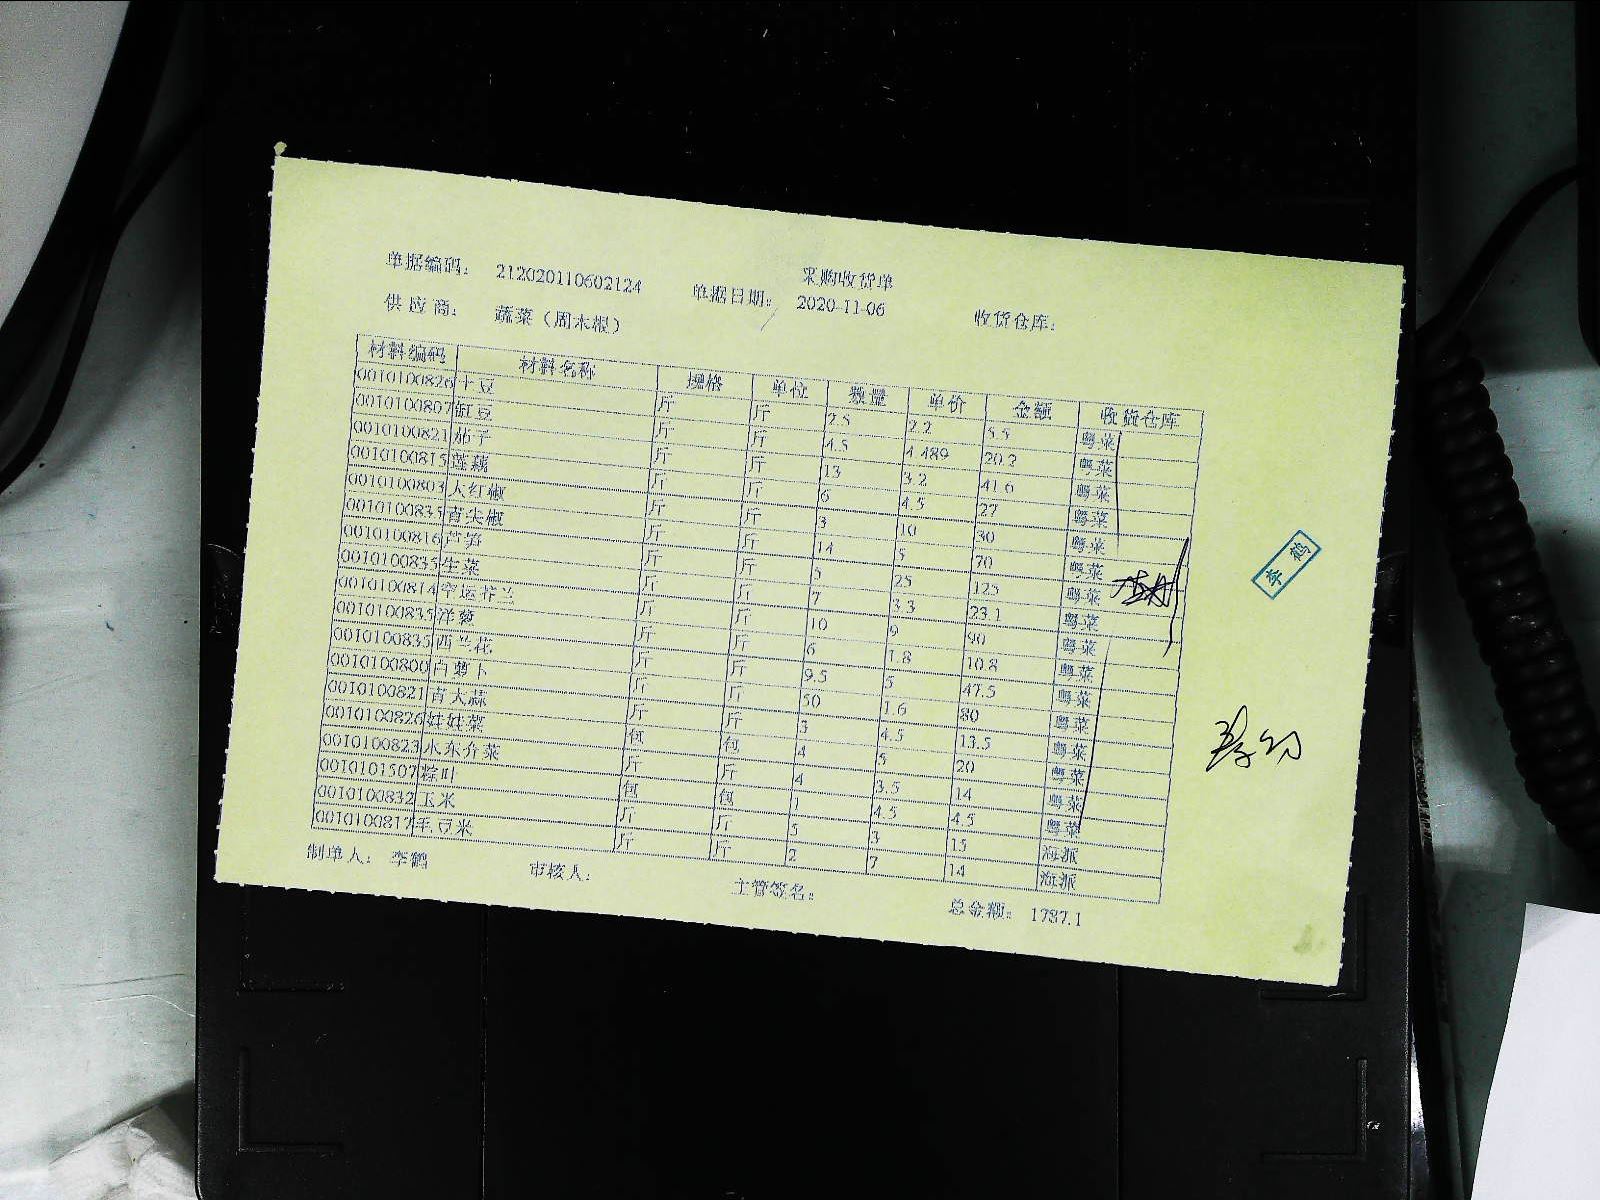 采购收货单
单据编码： 212020110602124 单据日期： 2020-11-06 收货仓库：
供应商： 蔬菜（周末根）
材料编码 材料名称 规格 单位 数量 单价 金额 收货仓库
0010100826 土豆 斤 斤 2.5 2.2 5.5 粤菜
0010100807 缸豆 斤 斤 4.5 4.489 20.2 粤菜
0010100821 茄子 斤 斤 13 3.2 41.6 粤菜
0010100815 莲藕 斤 斤 6 4.5 27 粤菜
0010100803 大红椒 斤 斤 3 10 30 粤菜
0010100835 青尖椒 斤 斤 14 5 70 粤菜
0010100816 芦笋 斤 斤 5 25 125 粤菜
0010100835 生菜 斤 斤 7 3.3 23.1 粤菜
0010100814 幸运芥兰 斤 斤 10 9 90 粤菜
0010100835 洋葱 斤 斤 6 1.8 10.8 粤菜
0010100835 西兰花 斤 斤 9.5 5 47.5 粤菜
0010100800 白萝卜 斤 斤 50 1.6 80 粤菜
0010100821 青大蒜 斤 斤 3 4.5 13.5 粤菜
0010100826 娃娃菜 包 包 4 5 20 粤菜
0010100823 水东介菜 斤 斤 4 3.5 14 粤菜
0010101507 粽叶 包 包 1 4.5 4.5 粤菜
0010100832 玉米 斤 斤 5 3 15 海派
0010100817 毛豆米 斤 斤 2 7 14 海派
制单人： 李鹤 审核人： 主管签名： 总金额： 1787.1
李鹤